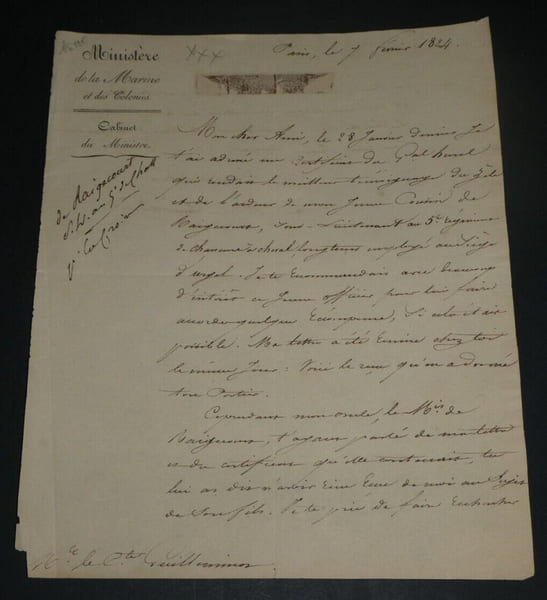 Ministère
de la Marine
et des Colonies
Cabinet
du Ministre.
Paris, le 7 février 1824.
de Raigecourt
Mon cher Ami, le 28 Janvier dernier, Je
t'ai adressé un Certificat du Gal hurel
qui rendait le meilleur témoignage du zèle
et de l'ardeur de mon Jeune Cousin de
Raigecourt, Sous-Lieutenant au 5e
de chasseurs à cheval, longtems employé au Siège
d'urgel. Je te recommandais avec beaucoup
d'intérêt ce Jeune officier pour lui faire
accorder quelque Récompense, Si cela était
possible. Ma lettre a été remise chez toi
le même Jour: Voici le reçu qu'en a donné
ton Portier.
Cependant mon oncle, le Mis de
Raigecourt, t'ayant parlé de ma lettre
et du certificat qu'elle contenait, tu
lui as dit n'avoir rien reçu de moi au Sujet
de Son fils. Je te prie de faire rechercher
Mr le Cte Guilleminot